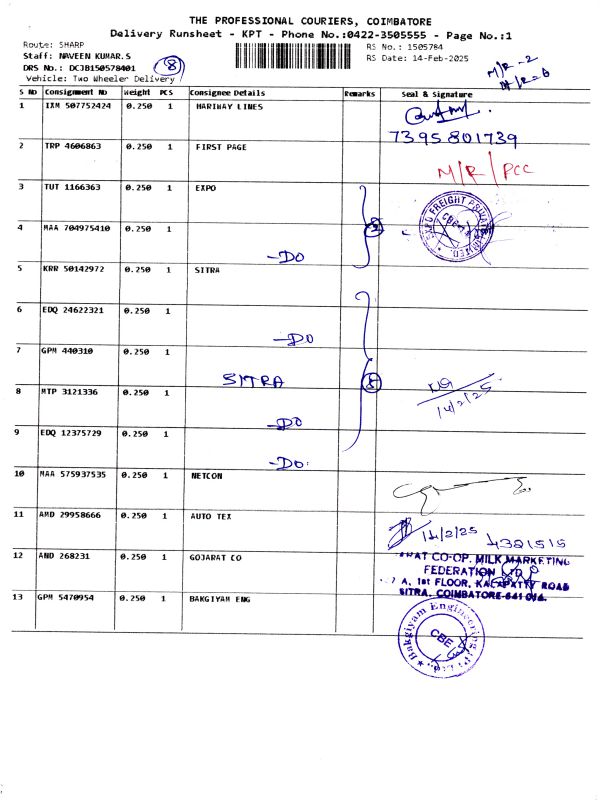 THE PROFESSIONAL COURIERS, COIMBATORE
Delivery Runsheet - KPT - Phone No.:0422-3505555 - Page No.:1
Route: SHARP
RS No.: 1505784
Staff: NAVEEN KUMAR.S
RS Date: 14-Feb-2025
DRS No.: DCJB150578401
8
Vehicle: Two Wheeler Delivery
M/R-2
S No Consignment No Weight PCS Consignee Details Remarks Seal & Signature
1 IXM 507752424 0.250 1 HARIWAY LINES
7395801739
2 TRP 4606863 0.250 1 FIRST PAGE
M/R/PCC
3 TUT 1166363 0.250 1 EXPO
4 MAA 704975410 0.250 1
-DO
5 KRR 50142972 0.250 1 SITRA
6 EDQ 24622321 0.250 1
-DO
7 GPM 440310 0.250 1
SITRA
8
8 MTP 3121336 0.250 1
14/2/25
-DO
9 EDQ 12375729 0.250 1
-DO
10 MAA 575937535 0.250 1 NETCON
11 AMD 29958666 0.250 1 AUTO TEX
14/2/25
4321515
12 AND 268231 0.250 1 GOJARAT CO
CO-OP. MILK MARKETING
FEDERATION
A, 1st FLOOR, KALAPATTY ROAD
SITRA, COIMBATORE-641 014.
13 GPM 5470954 0.250 1 BAKGIYAM ENG
Bakgiyam Engineering
CBE